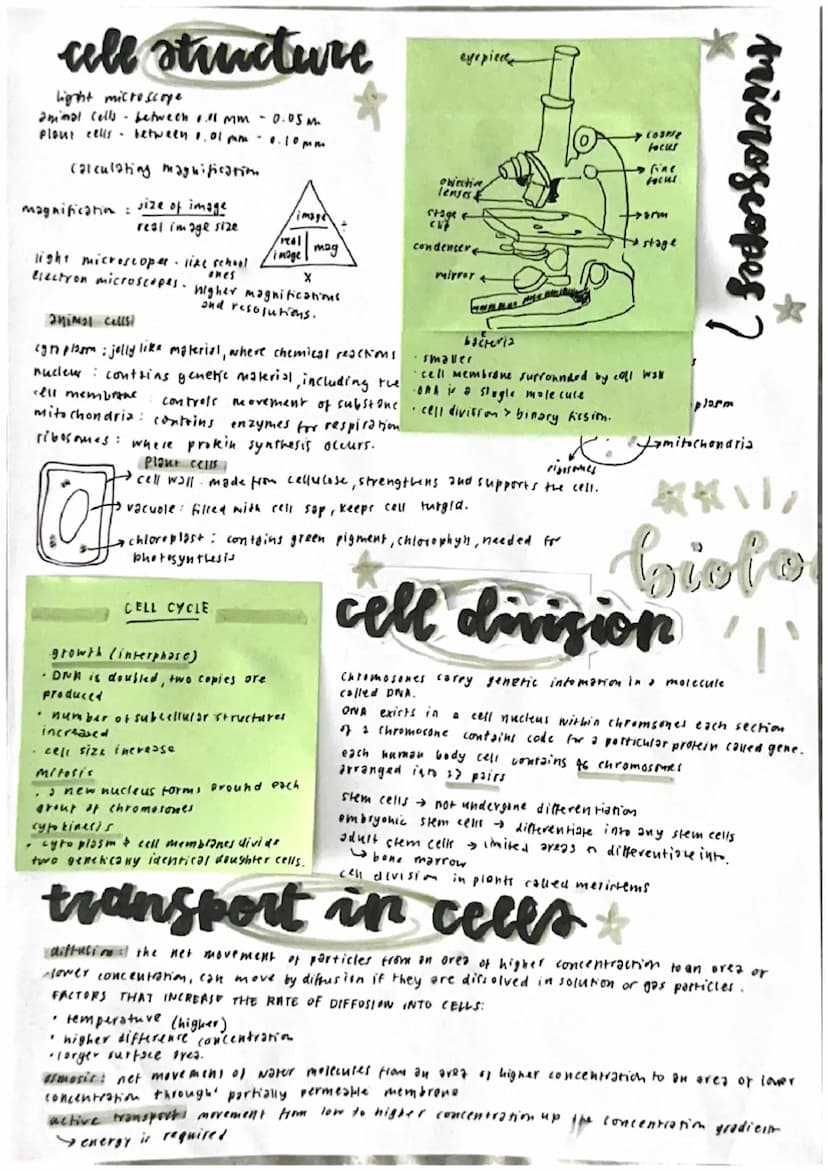 cell structure
light microscope
animal cells - between 0.01 mm - 0.05 m
plant cells - between 0.01 mm - 0.10 mm
calculating magnification
magnification = size of image
real image size
image
÷
real
image
mag
x
light microscopes - like school
ones
electron microscopes - higher magnifications
and resolutions.
microscopes
eyepiece
coarse
focus
fine
focus
objective
lenses
arm
stage
clip
stage
condenser
mirror
bacteria
· smaller
· cell membrane surrounded by cell wall
· DNA is a single molecule
· cell division > binary fission.
animal cells
cytoplasm : jelly like material, where chemical reactions
nucleus : contains genetic material, including the
cell membrane : controls movement of substanc
mitochondria : contains enzymes for respiration
ribosomes : where protein synthesis occurs.
plasm
mitochondria
ribosomes
plant cells
cell wall - made from cellulose, strengthens and supports the cell.
vacuole : filled with cell sap, keeps cell turgid.
chloroplast : contains green pigment, chlorophyll, needed for
photosynthesis
biolo
CELL CYCLE
growth (interphase)
· DNA is doubled, two copies are
produced
· number of subcellular structures
increased
· cell size increase
mitosis
· a new nucleus forms around each
group of chromosones
cytokinesis
· cytoplasm + cell membranes divide
two genetically identical daughter cells.
cell division
chromosones carry genetic infomation in a molecule
called DNA.
DNA exicts in a cell nucleus within chromsones each section
of a chromosone contains code for a particular protein called gene.
each human body cell contains 46 chromosones
arranged into 23 pairs
stem cells → not undergone differentiation
embryonic stem cells → differentiate into any stem cells
adult stem cells → limited areas to differentiate into.
↳ bone marrow
cell division in plants called meristems
transport in cells
diffusion: the net movement of particles from an area of higher concentraction to an area of
lower concentration, can move by diffusion if they are dissolved in solution or gas particles.
FACTORS THAT INCREASE THE RATE OF DIFFUSION INTO CELLS:
· temperature (higher)
· higher difference concentration
· larger surface area.
osmosis: net movement of water molecules from an area of higher concentration to an area of lower
concentration through partially permeable membrane
active transport: movement from low to higher concentration up the concentration gradient
↳ energy is required